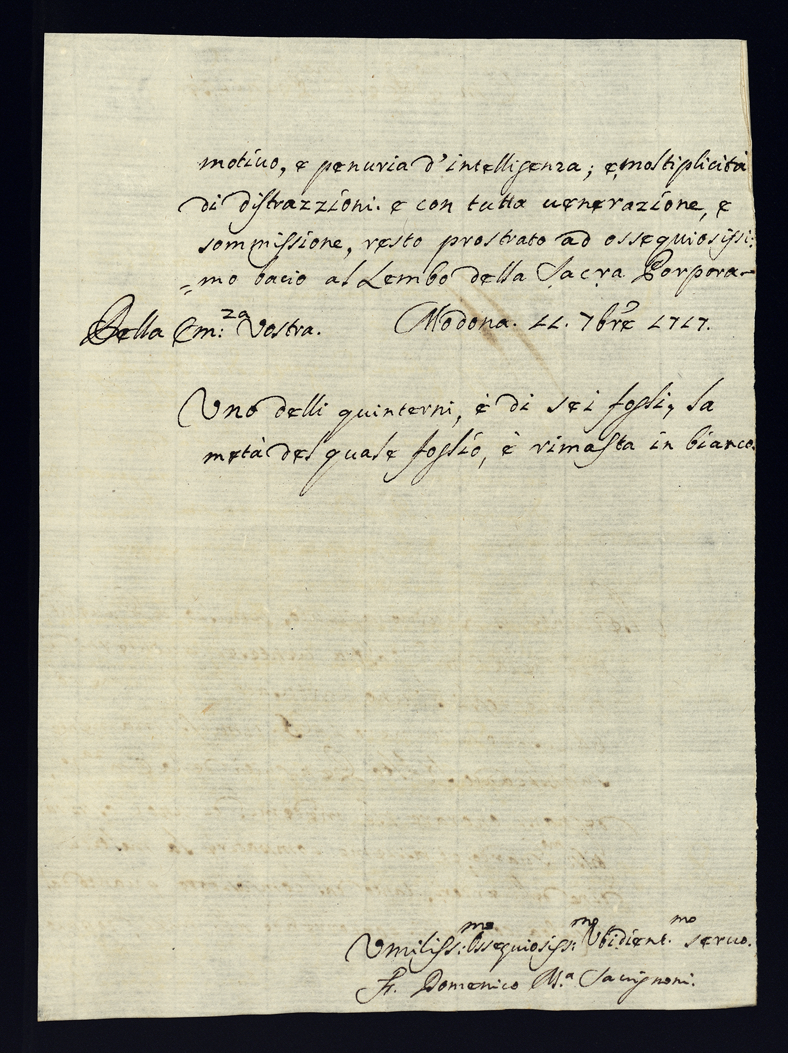 motiuo, e penuria d'intelligenza; e moltiplicità
di distrazzioni. e con tutta uenerazione, e
sommissione, resto prostrato ad ossequiosissi:
=mo bacio al Lembo della Sacra Porpora
Della Em:za Vostra. Modona. 11. 7bre 1717.
Uno delli quinterni, è di sei fogli, la
metà del quale foglio, è rimasta in bianco.
Vmiliss:mo Ossequiosiss:mo Vbidient.mo seruo.
Fr. Domenico Ma. Savignoni.